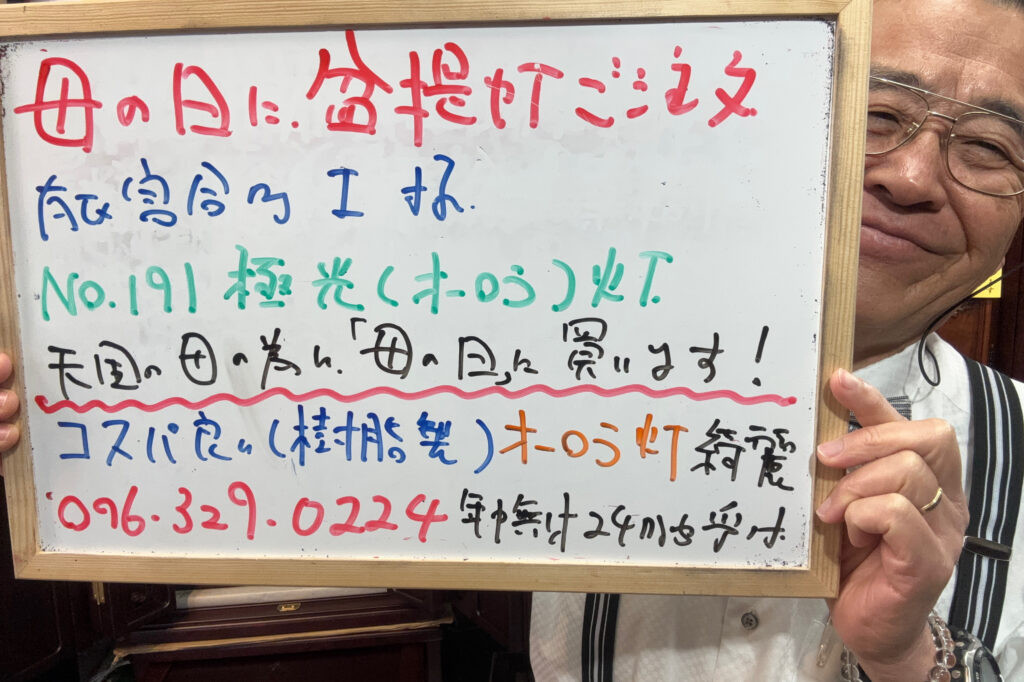 母の日に、盆提灯ご注文
I 様
No.191 極光(オーロラ)灯
天国の母の為に、「母の日」に買います!
コスパ良い(樹脂製)オーロラ灯 綺麗
096-329-0224 年中無休24